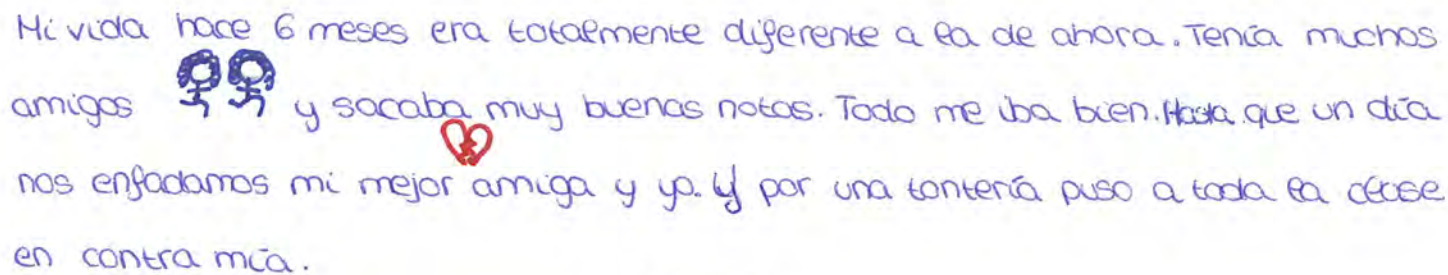 Mi vida hace 6 meses era totalmente diferente a la de ahora. Tenía muchos
amigos y sacaba muy buenas notas. Todo me iba bien. Hasta que un día
nos enfadamos mi mejor amiga y yo. Y por una tontería puso a toda la clase
en contra mía.